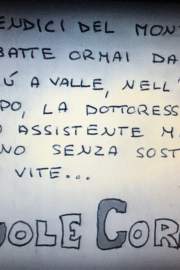 ENDICI DEL MON
BATTE ORMAI DA
Ú A VALLE, NELL'
PO, LA DOTTORESS
O ASSISTENTE M
NO SENZA SOST
VITE...
UOLE COR